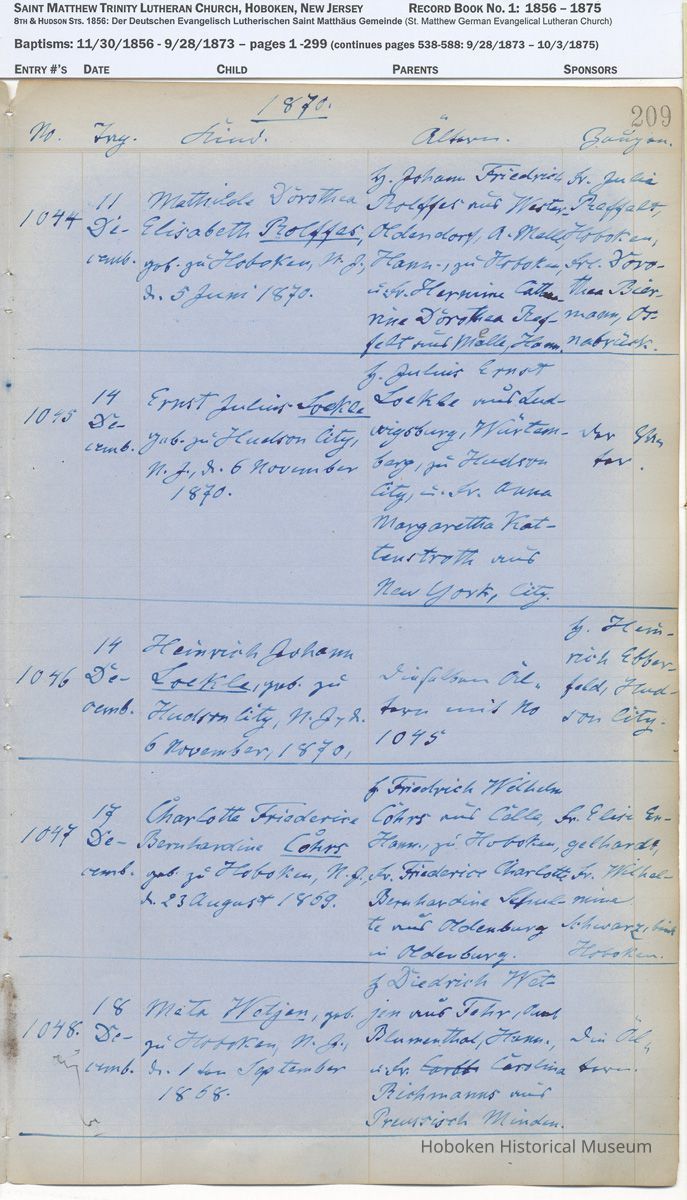 SAINT MATTHEW TRINITY LUTHERAN CHURCH, HOBOKEN, NEW JERSEY RECORD BOOK NO. 1: 1856 – 1875
8TH & HUDSON STS. 1856: Der Deutschen Evangelisch Lutherischen Saint Matthäus Gemeinde (St. Matthew German Evangelical Lutheran Church)
Baptisms: 11/30/1856 - 9/28/1873 – pages 1 -299 (continues pages 538-588: 9/28/1873 – 10/3/1875)
ENTRY #'S DATE CHILD PARENTS SPONSORS
1870.
209
No. Tag. Kind. Ältern. Zeugen.
1044
11
De-
cemb.
Mathilde Dorothea
Elisabeth Rolffes,
geb. zu Hoboken, N. J.,
d. 5 Juni 1870.
H. Johann Friedrich
Rolffes aus Wester-
Oldendorf, A. Melle
Hann., zu Hoboken,
u. Fr. Hermine Catha-
rine Dorothea Ref-
felt aus Melle, Hann.
Fr. Julia
Reffelt,
Hoboken,
Frl. Doro-
thea Bier-
mann, Os-
nabrück.
1045
14
De-
cemb.
Ernst Julius Loekle
geb. zu Hudson City,
N. J., d. 6 November
1870.
H. Julius Ernst
Loekle aus Lud-
wigsburg, Würtem-
berg, zu Hudson
City, u. Fr. Anna
Margaretha Kat-
tenstroth aus
New York, City.
der Va-
ter.
1046
14
De-
cemb.
Heinrich Johann
Loekle, geb. zu
Hudson City, N. J., d.
6 November, 1870,
Dieselben Äl-
tern mit No
1045
H. Hein-
rich Ebber-
feld, Hud-
son City.
1047
17
De-
cemb.
Charlotte Friederice
Bernhardine Cöhrs
geb. zu Hoboken, N. J.,
d. 23 August 1869.
H Friedrich Wilhelm
Cöhrs aus Celle,
Hann., zu Hoboken,
Fr. Friederice Charlotte
Bernhardine Schul-
te aus Oldenburg
in Oldenburg.
Fr. Elise En-
gelhardt,
Fr. Wilhel-
mine
Schwarz, beide
Hoboken.
1048.
18
De-
cemb.
Meta Wetjen, geb.
zu Hoboken, N. J.,
d. 1 ten September
1868.
H Diedrich Wet-
jen aus Fehr, Amt
Blumenthal, Hann.,
u. Fr. Carolina
Richmanns aus
Preussisch Minden.
Die Äl-
tern.
Hoboken Historical Museum